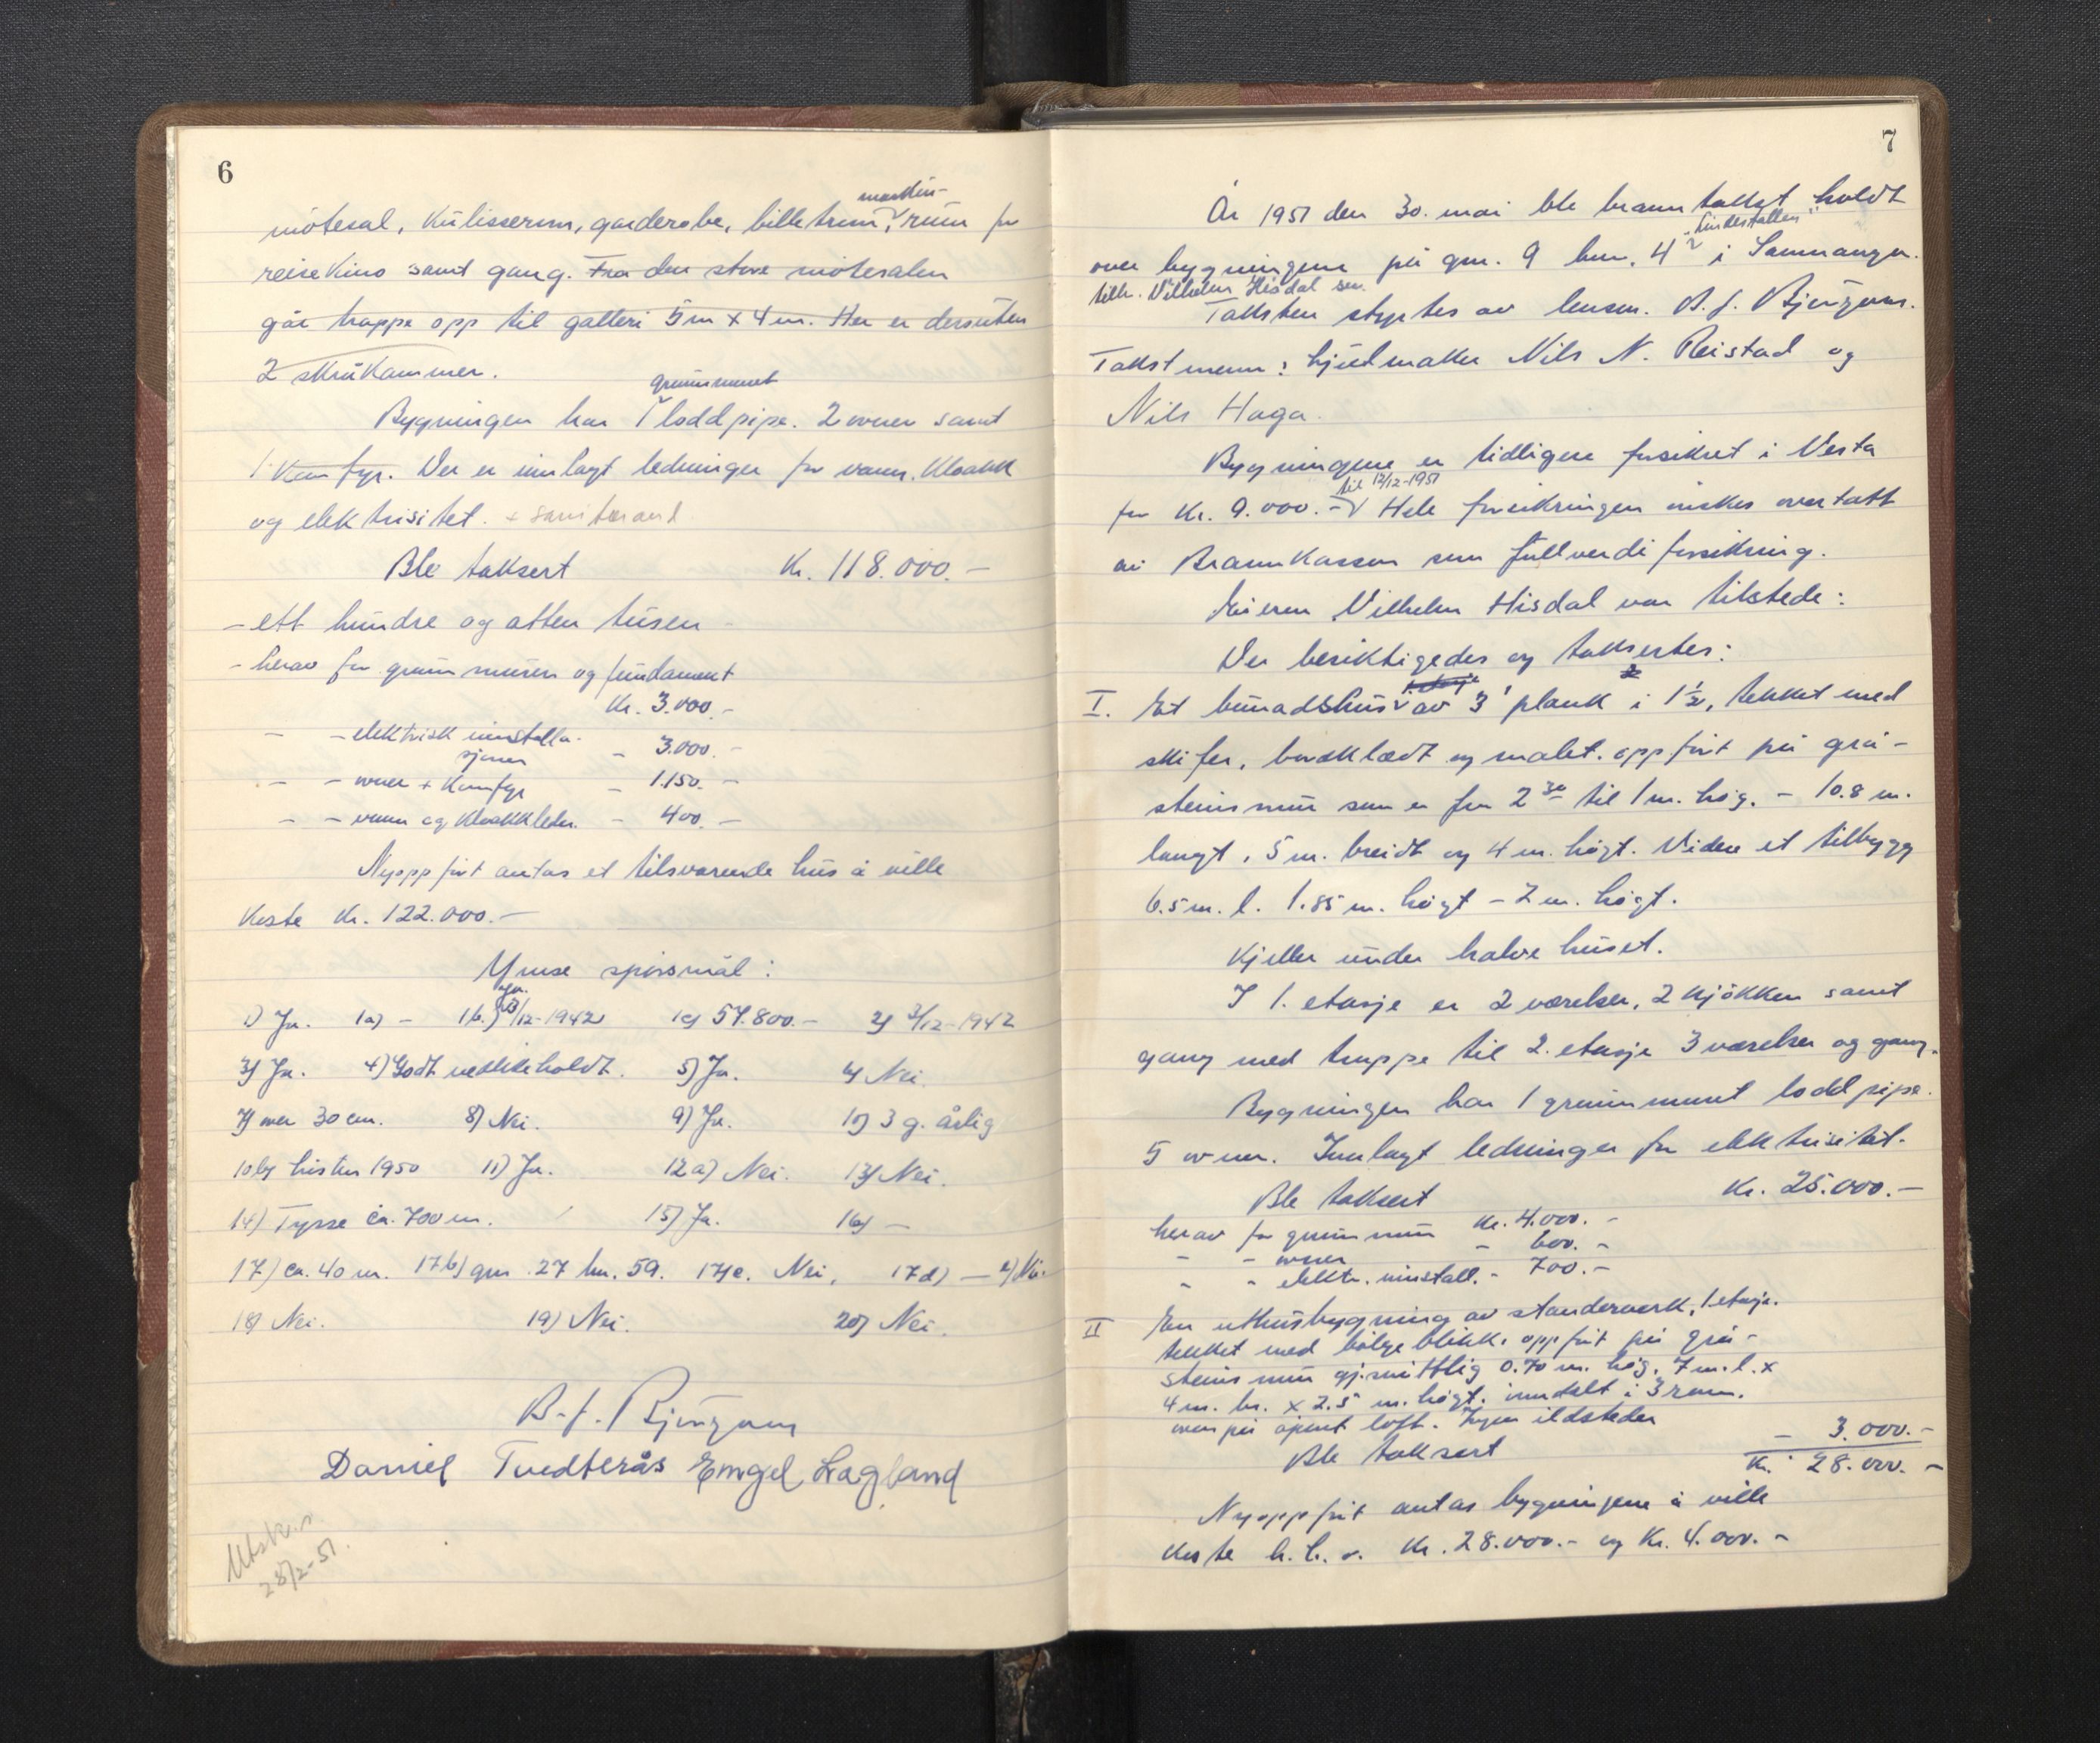 6
maskin-
møtesal, Kulisserum, garderobe, billetrum, rum for
reisekino samt gang. Fra den store møtesalen
går trappe opp til galleri 5 m x 4 m. Her er dersuten
2 skråkammer.
grunnmuret
Bygningen har 1 loddpipe. 2 ovner samt
1 Komfyr. Der er innlagt ledninger for vann. Kloakk
og elektrisitet. + sanitæranl
Ble taksert Kr. 118.000.-
- ett hundre og atten tusen -
- herav for grunnmuren og fundament
Kr. 3.000.-
- - elektrisk innstalla-
sjoner - 3.000.-
- - ovner + Komfyr - 1.150.-
- - vann og Kloakkledn. - 400.-
Nyoppført antas et tilsvarende hus å ville
Koste Kr. 122.000.-
Ymse spørsmål:
Ja.
1) Ja. 1a) - 1b.) 3/12-1942 1c) 54.800.- 2) 3/12-1942
3) Ja. 4) Godt vedlikeholdt. 5) Ja. 6) Nei.
7) over 30 cm. 8) Nei. 9) Ja. 10) 3 g. årlig
10b) høsten 1950 11) Ja. 12a) Nei. 13) Nei.
14) Tysse ca. 700 m. 15) Ja. 16) -
17) ca. 40 m. 17b) gnr. 27 bn. 59. 17c. Nei, 17d) - e) Nei.
18) Nei. 19) Nei. 20) Nei.
B. J. Bjørgum
Daniel Tvedterås Engel Lagland
Utskr.
28/2-51.
7
År 1951 den 30. mai ble branntakst holdt
"Lindestallen"
over bygningene på gnr. 9 bnr. 4 i Samnanger.
tilh. Vilhelm Hisdal sen.
Taksten styrtes av lensm. B. J. Bjørgum.
Takstmenn: hjulmaker Nils N. Reistad og
Nils Haga.
Bygningene er tidligere forsikret i Vesta
til 12/12-1951
for Kr. 9.000.- Hele forsikringen ønskes overtatt
av Brannkassen som fullverdiforsikring.
Eieren Vilhelm Hisdal var tilstede:
Der besiktigedes og taksertes:
I. Et bunadshus av 3" plank i 1 1/2, tekket med
skifer, bordklædt og malet. oppført på grå-
steinsmur som er fra 2 30 til 1 m. høg. - 10.8 m.
langt, 5 m. breidt og 4 m. høgt. Videre et tilbygg
6.5 m. l. 1.85 m. høgt - 2 m. høgt.
Kjeller under halve huset.
I 1. etasje er 2 værelser, 2 kjøkken samt
gang med trappe til 2. etasje 3 værelser og gang.
Bygningen har 1 grunnmuret loddpipe.
5 ovner. Innlagt ledninger for elektrisitet.
Ble taksert Kr. 25.000.-
herav for grunnmur Kr. 4.000.-
- - ovner - 600.-
- - elektr. innstall. - 700.-
II En uthusbygning av standerverk, 1 etasje.
tekket med bølgeblikk. oppført på grå-
steinsmur gj.snittlig 0.70 m. høg. 7 m. l. x
4 m. br. x 2.5 m. høgt. inndelt i 3 rom.
oven på åpent loft. Ingen ildsteder
Ble taksert - 3.000.-
Kr. 28.000.-
Nyoppført antas bygningene å ville
koste h. h. v. Kr. 28.000.- og Kr. 4.000.-